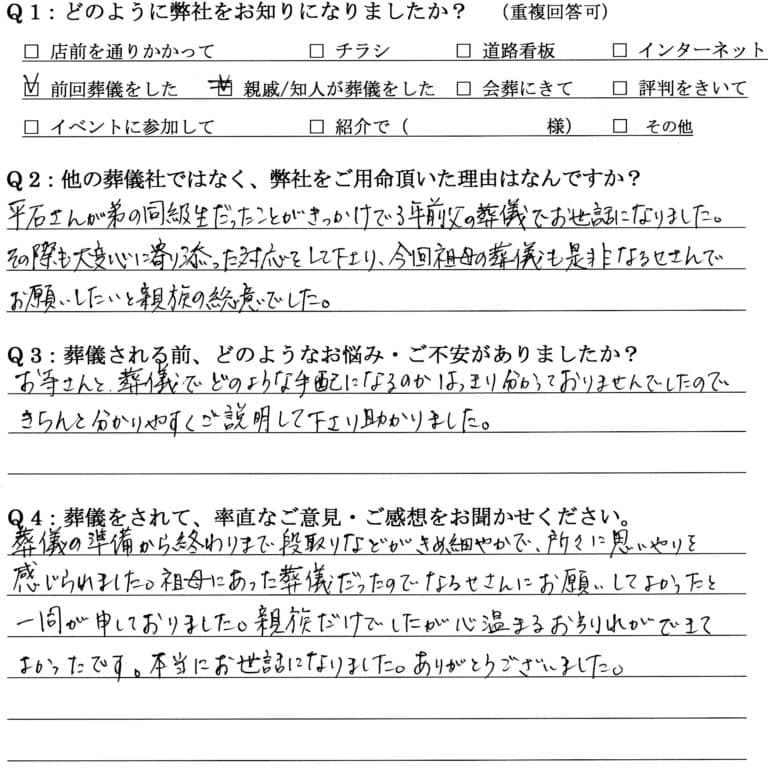 Q1：どのように弊社をお知りになりましたか？　（重複回答可）
□ 店前を通りかかって　□ チラシ　□ 道路看板　□ インターネット
☑ 前回葬儀をした　□ 親戚/知人が葬儀をした　□ 会葬にきて　□ 評判をきいて
□ イベントに参加して　□ 紹介で（　　　　　様）　□ その他
Q2：他の葬儀社ではなく、弊社をご用命頂いた理由はなんですか？
平石さんが弟の同級生だったことがきっかけで3年前父の葬儀でお世話になりました。
その際も大変心に寄り添った対応をして下さり、今回祖母の葬儀も是非なるせさんで
お願いしたいと親族の総意でした。
Q3：葬儀される前、どのようなお悩み・ご不安がありましたか？
お寺さんと、葬儀でどのような手配になるのかはっきり分かっておりませんでしたので
きちんと分かりやすくご説明して下さり助かりました。
Q4：葬儀をされて、率直なご意見・ご感想をお聞かせください。
葬儀の準備から終わりまで段取りなどがきめ細やかで、所々に思いやりを
感じられました。祖母にあった葬儀だったのでなるせさんにお願いしてよかったと
一同が申しておりました。親族だけでしたが心温まるお別れができて
よかったです。本当にお世話になりました。ありがとうございました。